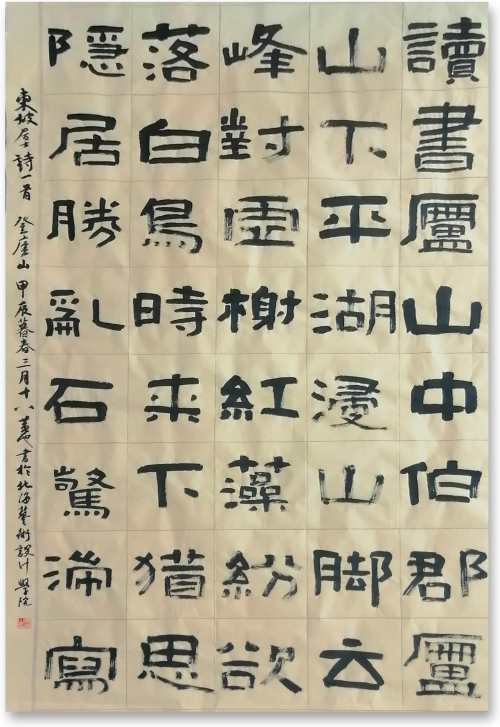 讀書廬山中伯郡廬
山下平湖浸山脚云
峰對虛榭紅藻紛欲
落白鳥時來下猶思
隱居勝亂石驚湍寫
東坡居士詩一首 登廬山 甲辰暮春三月十八 書於北海藝術設计學院